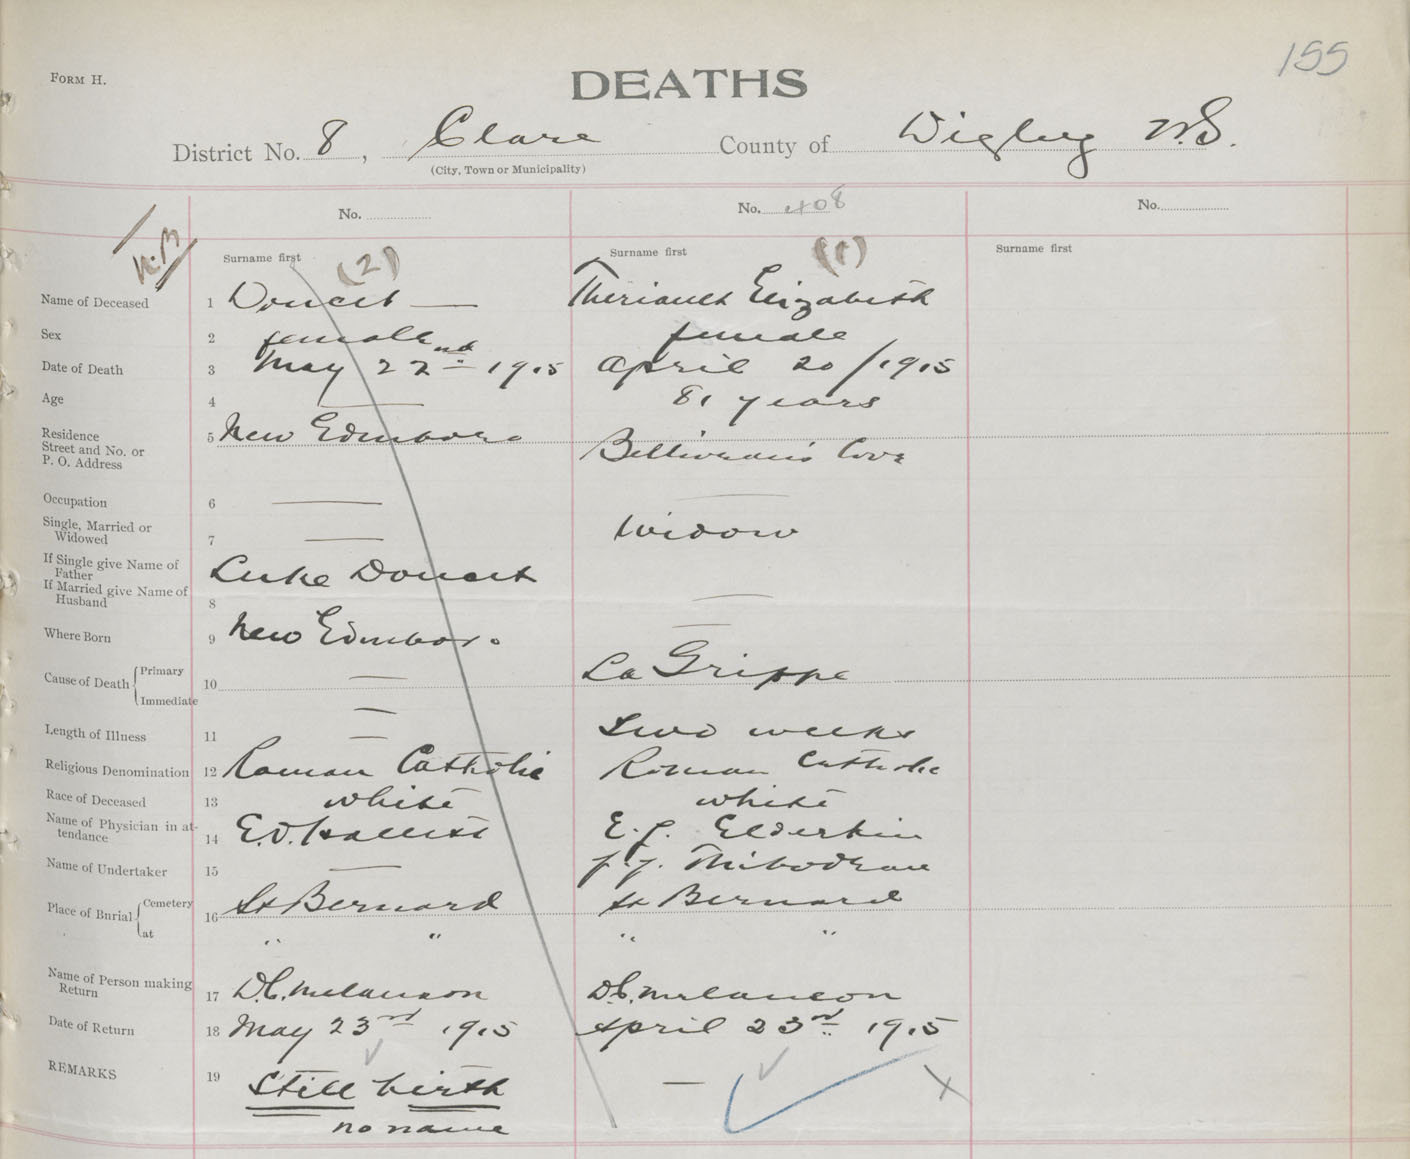 155
FORM H.
DEATHS
District No. 8, Clare County of Digby N.S.
(City, Town or Municipality)
No. No. 408 No.
N.B
Surname first (2) Surname first (1) Surname first
Name of Deceased 1 Doucet — Theriault Elizabeth
Sex 2 female female
Date of Death 3 May 22nd 1915 April 20/1915
Age 4 — 81 years
Residence
Street and No. or
P. O. Address 5 New Edinboro Belliveau's Cove
Occupation 6 — —
Single, Married or
Widowed 7 — Widow
If Single give Name of
Father Luke Doucet
If Married give Name of
Husband 8 —
Where Born 9 New Edinboro —
Cause of Death { Primary 10 — La Grippe
Immediate —
Length of Illness 11 — Two weeks
Religious Denomination 12 Roman Catholic Roman Catholic
Race of Deceased 13 white white
Name of Physician in at-
tendance 14 E.D. Hallett E. J. Elderkin
Name of Undertaker 15 — J. J. Thibodeau
Place of Burial { Cemetery 16 St Bernard St Bernard
at " " " "
Name of Person making
Return 17 D.C. Melanson D.C. Melanson
Date of Return 18 May 23rd 1915 April 23rd 1915
REMARKS 19 Still birth —
no name